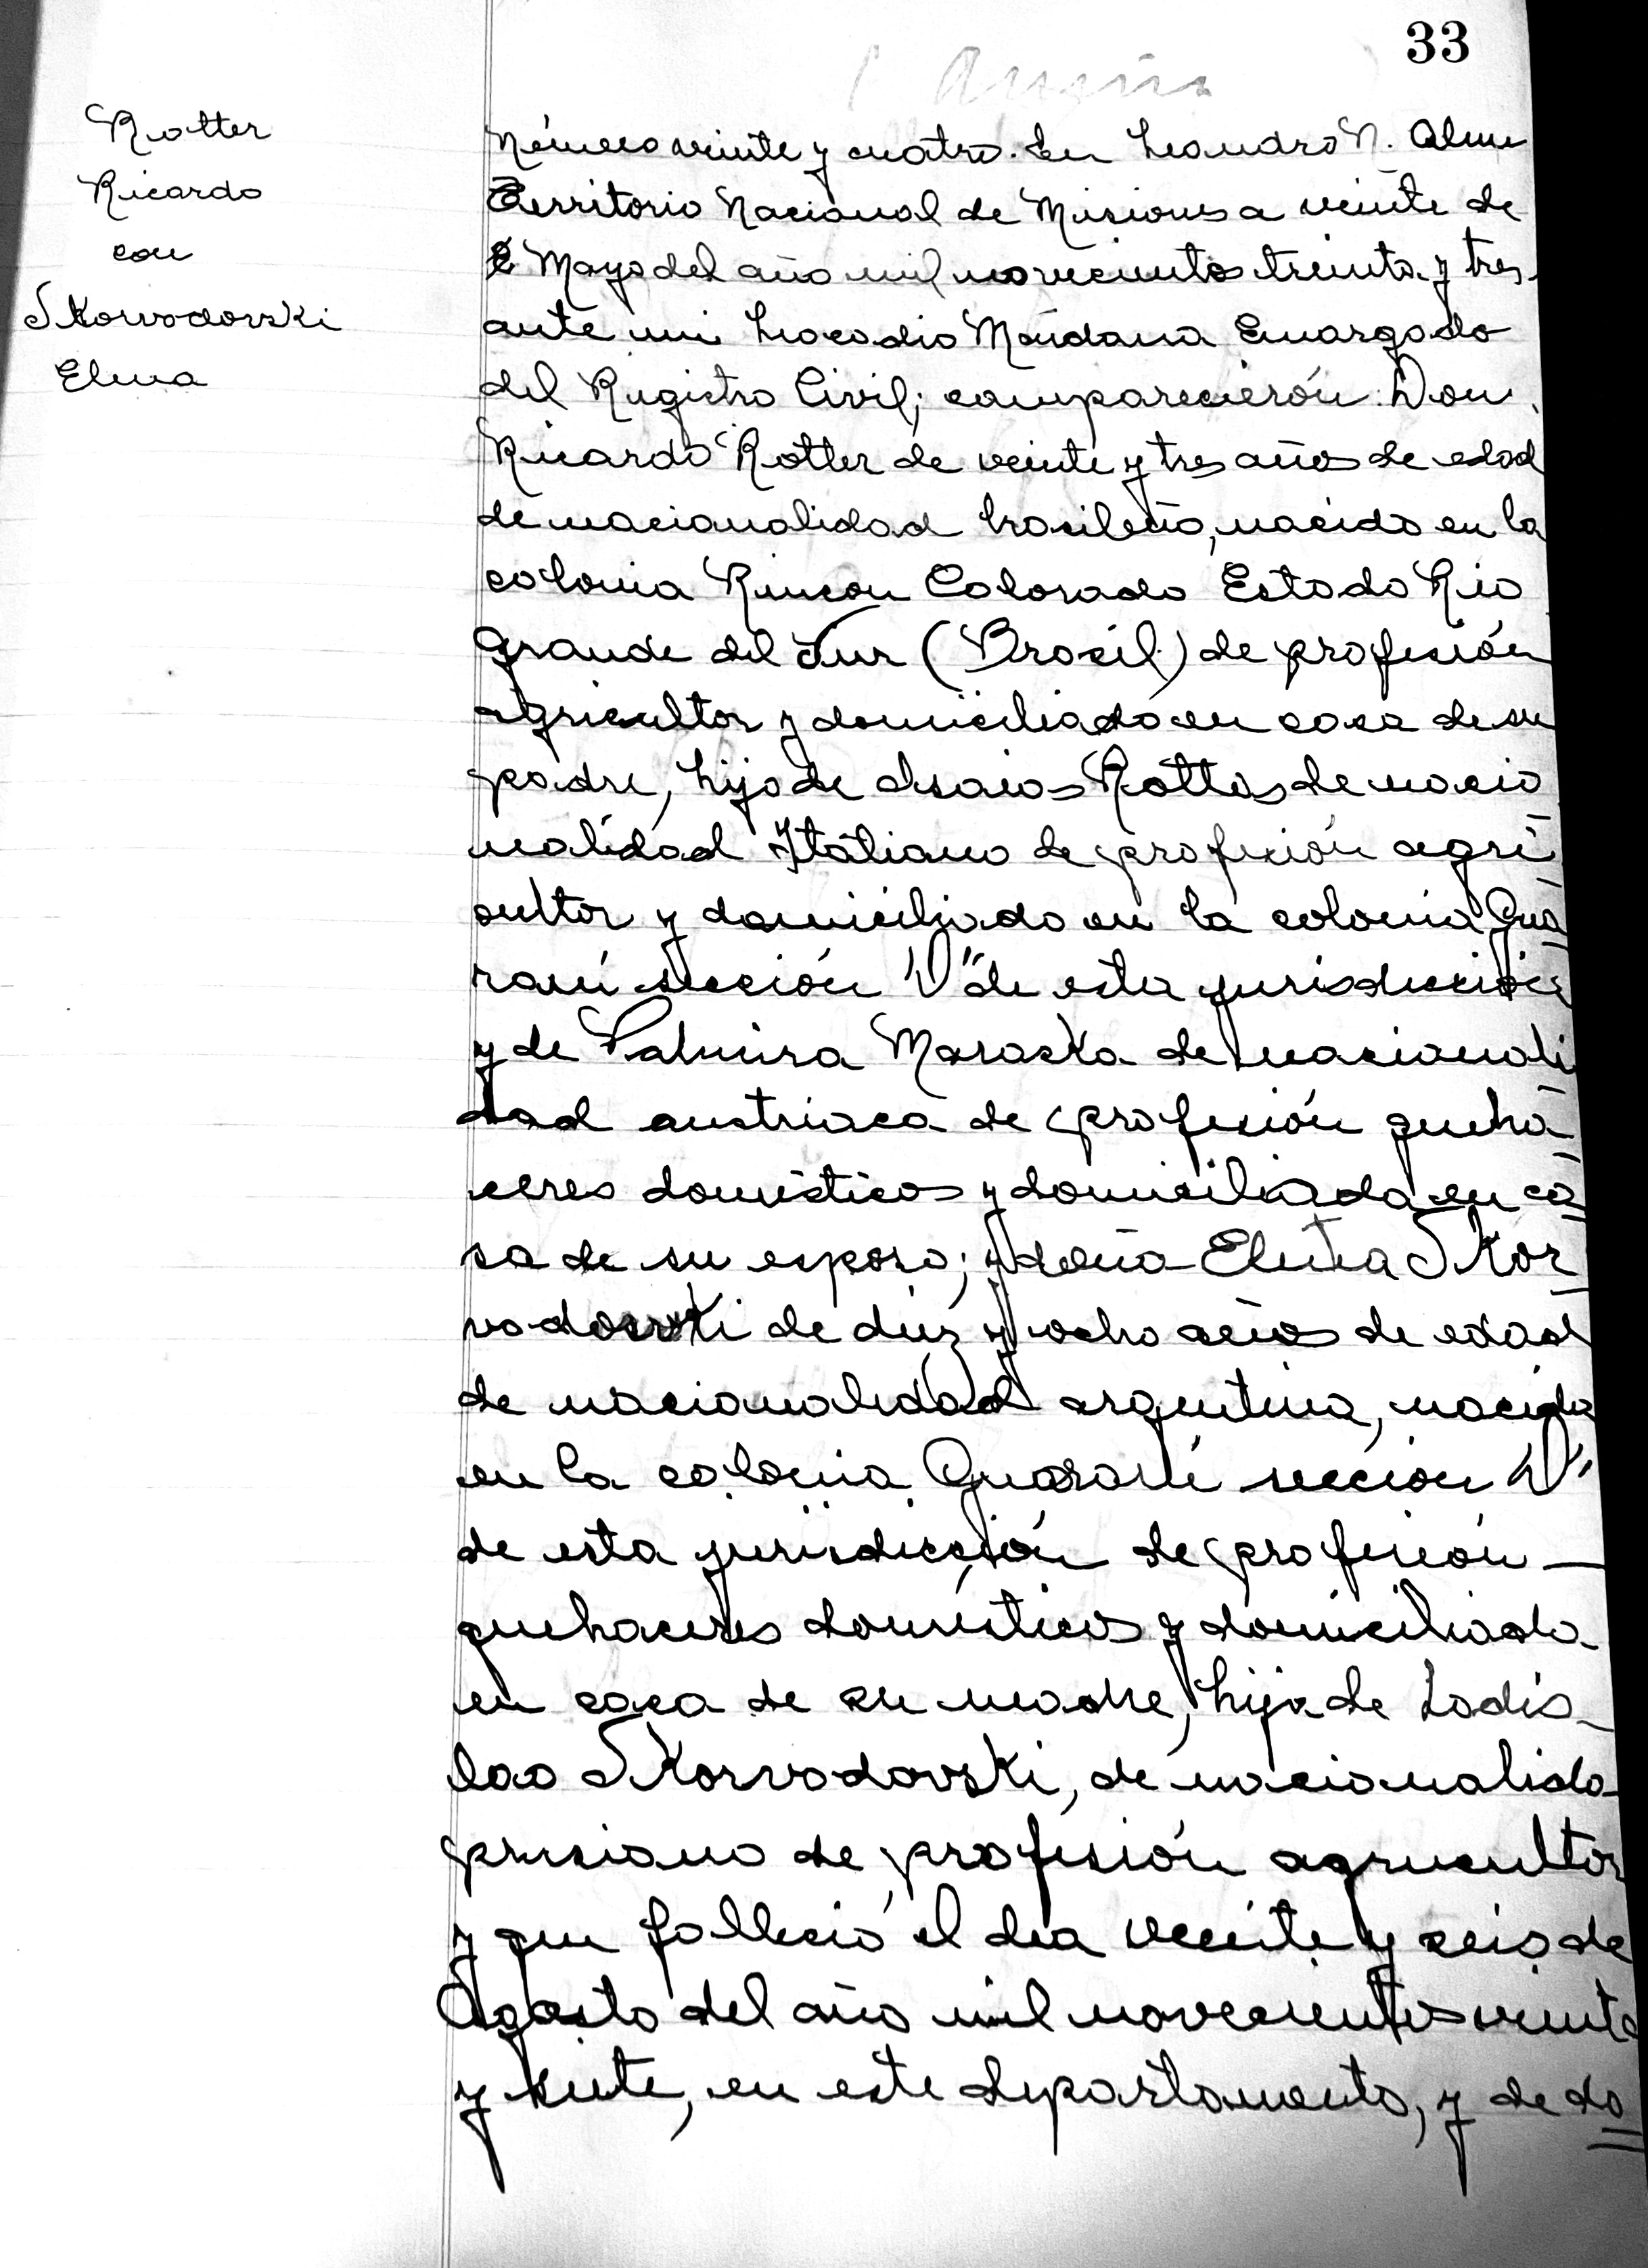 33
Rotter
Ricardo
con
Skorvodovski
Elena
Número veinte y cuatro. En Leandro N. Alem
Territorio Nacional de Misiones a veinte de
Mayo del año mil novecientos treinta y tres
ante mi Leocadio Maidana Encargado
del Registro Civil; comparecierón: Don
Ricardo Rotter de veinte y tres años de edad
de nacionalidad brasileño, nacido en la
colonia Rincon Colorado Estado Rio
Grande del Sur (Brasil) de profesión
agricultor y domiciliado en casa de su
padre, hijo de Rotter de nacio
nalidad Italiano de profesión agri
cultor y domiciliado en la colonia Gua
raní sección "D" de esta jurisdicción
y de Palmira Maraska de nacionali
dad austriaca de profesión queha
ceres domésticos y domiciliada en ca
sa de su esposo; y doña Elena Skor
vodovski de diez y ocho años de edad
de nacionalidad argentina, nacida
en la colonia Guaraní sección "D"
de esta jurisdicción de profesión
quehaceres domésticos y domiciliada
en casa de su madre, hija de Ladis
lao Skorvodovski, de nacionalida
prusiano de profesión agricultor
y que falleció el dia veinte y seis de
Agosto del año mil novecientos veinte
y siete, en este departamento, y de do